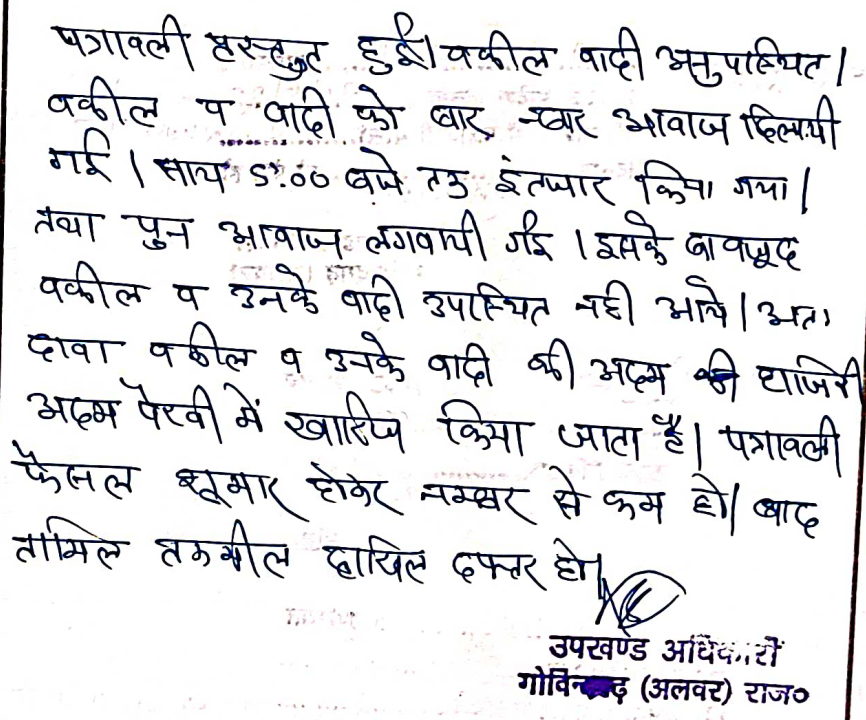 पत्रावली प्रस्तुत हुई। वकील वादी अनुपास्थित।
वकील व वादी को बार बार आवाज दिलायी
गई। साय 5:00 बजे तक इंतजार किया गया।
तथा पुन आवाज लगवायी गई। इसके बावजूद
वकील व उनके वादी उपास्थित नही आये। अतः
दावा वकील व उनके वादी की अदम की हाजिरी
अदम पैरवी में खारिज किया जाता है। पत्रावली
फैसल शूमार होकर नम्बर से कम हो। बाद
तामिल तकमील दाखिल दफ्तर हो।
उपखण्ड अधिकारी
गोविन्दगढ़ (अलवर) राज०